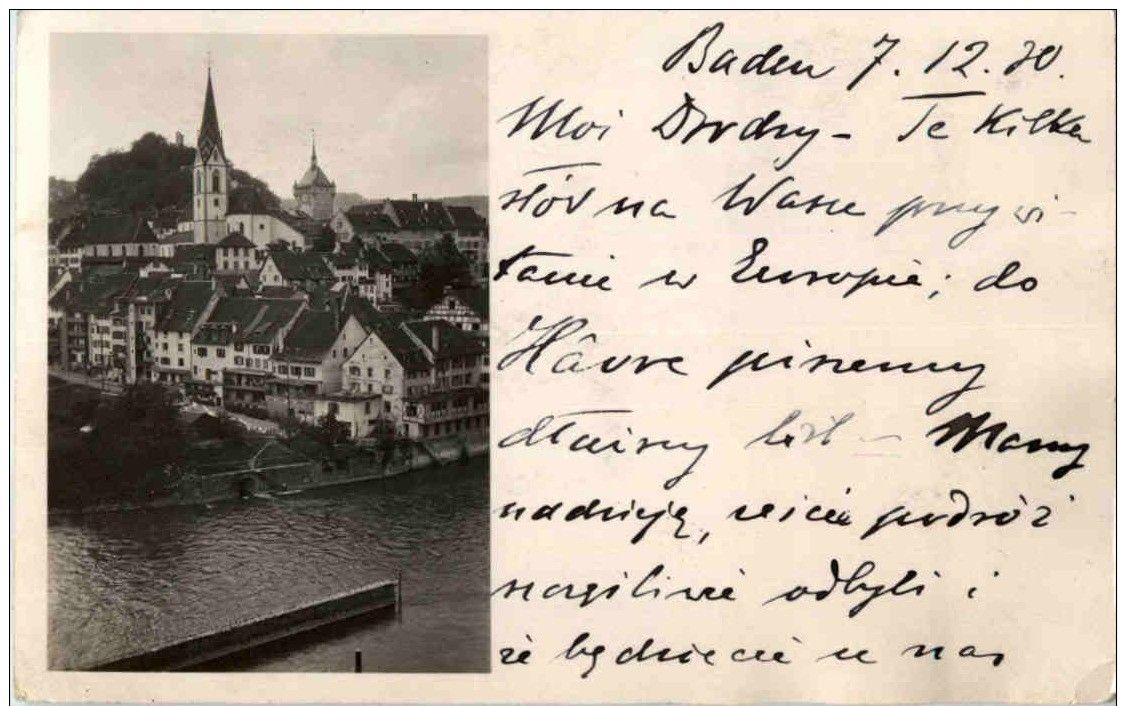 Baden 7. 12. 30.
Moi Drodzy – Te Kilka
słów na Wasze przywi-
tanie w Europie; do
Hâvre piszemy
dłuższy list – Mamy
nadzieję, żeście podróż
szczęśliwie odbyli i
że będziecie u nas